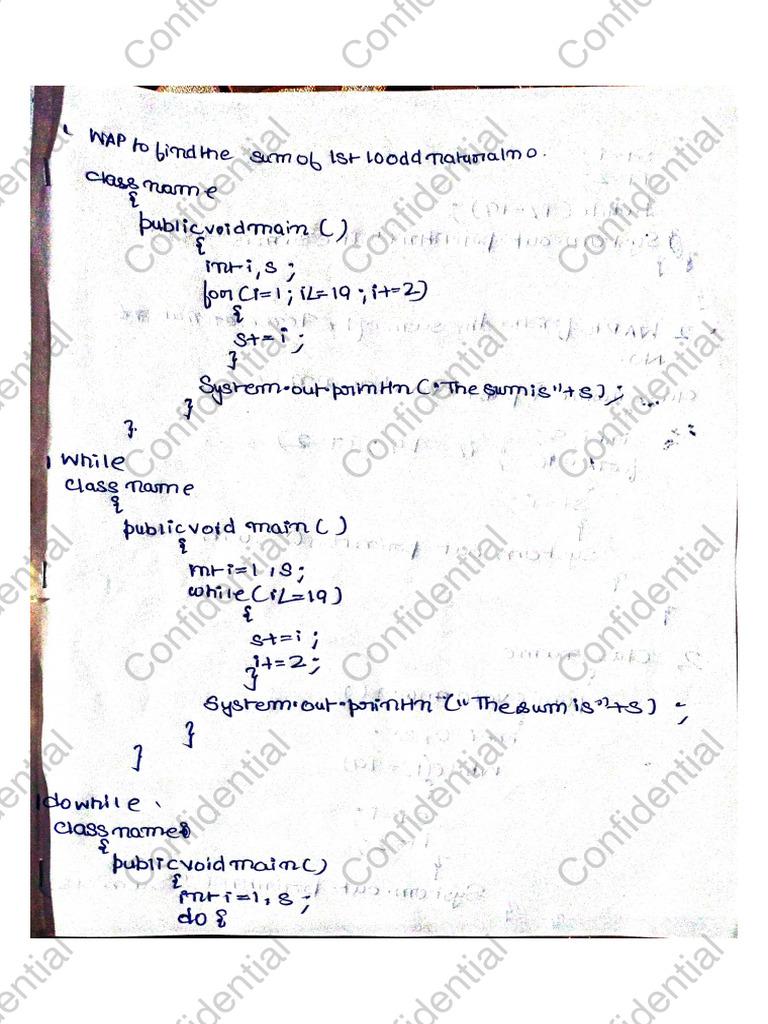 1. WAP to find the sum of 1st 10 odd natural no.
class name
{
public void main ( )
{
int i, s ;
for (i=1 ; i<=19 ; i+=2)
{
s+=i ;
}
System.out.println ("The sum is"+s) ;
}
}
1 while
class name
{
public void main ( )
{
int i=1, s ;
while (i<=19)
{
s+=i ;
i+=2 ;
}
System.out.println ("The sum is"+s) ;
}
}
1 do while
class name
{
public void main ( )
{
int i=1, s ;
do {
Confidential